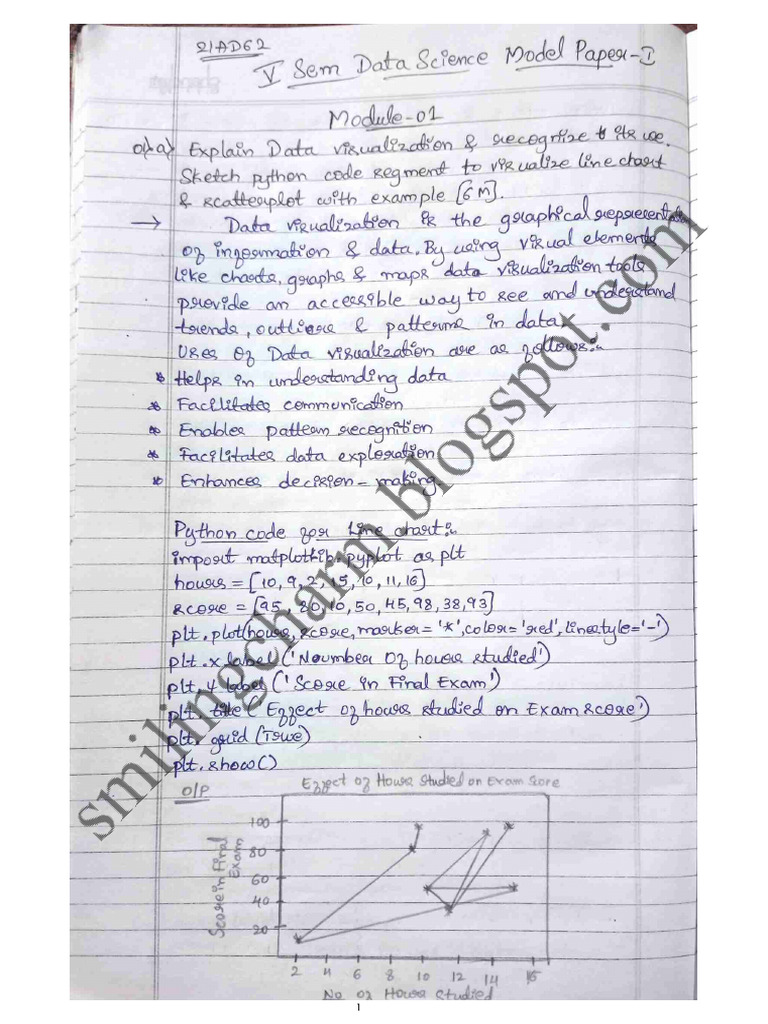 21AD62
V Sem Data Science Model Paper-I
Module-01
Q1.a) Explain Data visualization & recognize it its use.
Sketch python code segment to visualize line chart
& scatterplot with example [6M].
→ Data visualization is the graphical representation
of information & data. By using visual elements
like charts, graphs & maps data visualization tools
provide an accessible way to see and understand
trends, outliers & patterns in data.
Uses of Data visualization are as follows:-
* Helps in understanding data
* Facilitates communication
* Enables pattern recognition
* Facilitates data exploration
* Enhances decision-making.
Python code for Line chart:-
import matplotlib.pyplot as plt
hours = [10, 9, 2, 15, 10, 11, 16]
score = [95, 80, 10, 50, 45, 98, 38, 93]
plt.plot(hours, score, marker='*', color='red', linestyle='-')
plt.xlabel('Noumber Of hours studied')
plt.ylabel('Score in Final Exam')
plt.title('Effect of hours studied on Exam score')
plt.grid(True)
plt.show()
O/P
Effect of Hours Studied on Exam Score
Score in Final Exam
100
80
60
40
20
2 4 6 8 10 12 14 16
No of Hours Studied
1
smilingcharm.blogspot.com